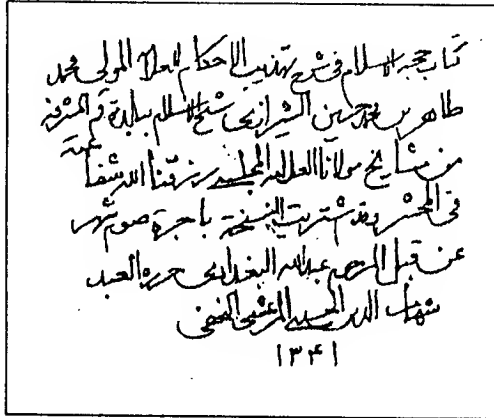 كتاب حجة الاسلام في شرح تهذيب الاحكام للعلامة المولى محمد
طاهر بن محمد حسين الشيرازي شيخ الاسلام ببلدة قم المشرفة
من مشايخ مولانا العلامة المجلسي رزقنا الله شفاعته
في المحشر وقد اشتريت النسخة باجرة صوم شهر
عن قبل المرحوم عبدالله البغدادي حرره العبد
شهاب الدين الحسيني المرعشي النجفي
١٣٤١